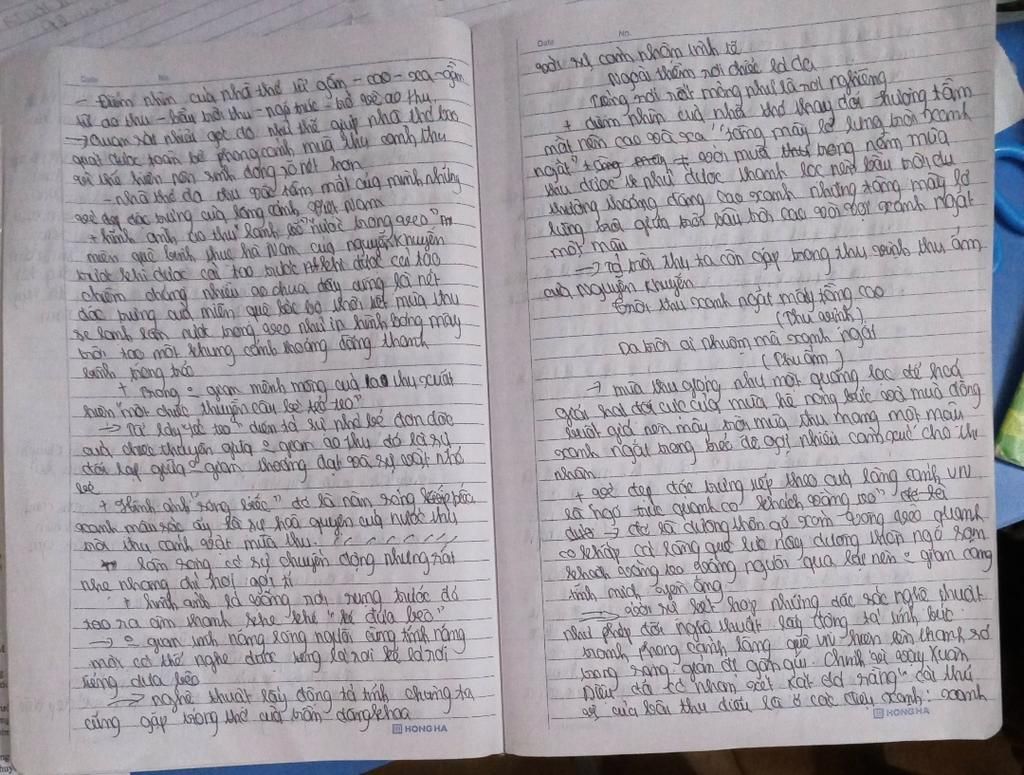 Date No.
- Điểm nhìn của nhà thơ từ gần - cao - xa - gần
từ ao thu - bầu trời thu - ngõ trúc - trở về ao thu
→ quan sát nhiều góc độ như thế giúp nhà thơ bao
quát được toàn bộ phong cảnh mùa thu cảnh thu
vì thế hiện nên sinh động rõ nét hơn
- nhà thơ đã thu vào tầm mắt của mình những
vẻ đẹp đặc trưng của làng cảnh Việt Nam
+ hình ảnh ao thu "lạnh lẽo" nước trong veo"
miền quê bình lục hà Nam của nguyễn khuyến
trước khi được cải tạo trước khi được cải tạo
chiêm chũng nhiều ao chua đây cũng là nét
đặc trưng của miền quê bắc bộ thời tiết mùa thu
se lạnh làn nước trong veo như in hình bóng mây
trời tạo một khung cảnh thoáng đãng thanh
bình trong trẻo
+ Trong = gian mênh mông của ao thu xuất
hiện "một chiếc thuyền câu bé tẻo teo"
→ Từ láy "tẻo teo" diễn tả sự nhỏ bé đơn độc
của chiếc thuyền giữa = gian ao thu đó là sự
đối lập giữa = gian thoáng đạt và sự vật nhỏ
bé
+ Hình ảnh "sóng biếc" đó là nằn sóng
xanh màu sắc ấy là sự hoà quyện của nước thu
trời thu cảnh vật mùa thu.
làn sóng có sự chuyển động nhưng rất
nhẹ nhàng chỉ hơi gợi tí
+ hình ảnh lá vàng rơi rụng trước đó
tạo ra âm thanh khe khẽ "đưa vèo"
→ = gian tĩnh nặng lòng người cũng tĩnh nặng
mới có thể nghe được tiếng lá rơi kể lá rơi
tiếng đưa vèo
→ nghệ thuật lấy động tả tĩnh chúng ta
cũng gặp trong thơ của trần đăng khoa
HONG HA
Date No.
với sự cảnh nhầm tinh tế
Ngoài thềm rơi chiếc lá đa
Tiếng rơi rất mỏng như là rơi nghiêng
+ điểm nhìn của nhà thơ thay đổi hướng tầm
mắt nên cao và xa "tầng mây lơ lửng trời xanh
ngắt" + với mùa thu trong năm mùa
thu được ví như được thanh lọc nên bầu trời thu
thường thoáng đãng cao xanh những tầng mây lơ
lửng trôi giữa trời bầu trời cao vời vợi xanh ngắt
một màu
→ tả trời thu ta còn gặp trong thu vịnh thu ẩm
của Nguyễn Khuyến
Trời thu xanh ngắt mấy tầng cao
(Thu vịnh)
Da trời ai nhuộm mà xanh ngắt
(Thu ẩm)
→ mùa thu giống như một quãng lọc để hoá
giải hai đối cực của mùa hè nóng bức với mùa đông
buốt giá nên mây trời mùa thu mang một màu
xanh ngắt trong trẻo để gợi nhiều cảm xúc cho thi
nhân
+ vẻ đẹp đặc trưng tiếp theo của làng cảnh VN
là "ngõ trúc quanh co khách vắng teo"
→ đó là đường thôn ngõ xóm vắng vẻo quanh
co khắp cả làng quê lúc này đường thôn ngõ xóm
khách vắng teo vắng người qua lại nên = gian càng
tĩnh mịch yên ắng
→ với sự kết hợp những đặc sắc nghệ thuật
như phép đối nghệ thuật lấy động tả tĩnh bức
tranh phong cảnh làng quê VN hiện lên thanh sơ
trong sáng giản dị gần gũi. Chính vì vậy Xuân
Diệu đã có nhận xét rất rõ ràng "cái thú
vị của bài thu điếu là ở các điệu xanh: xanh
HONG HA